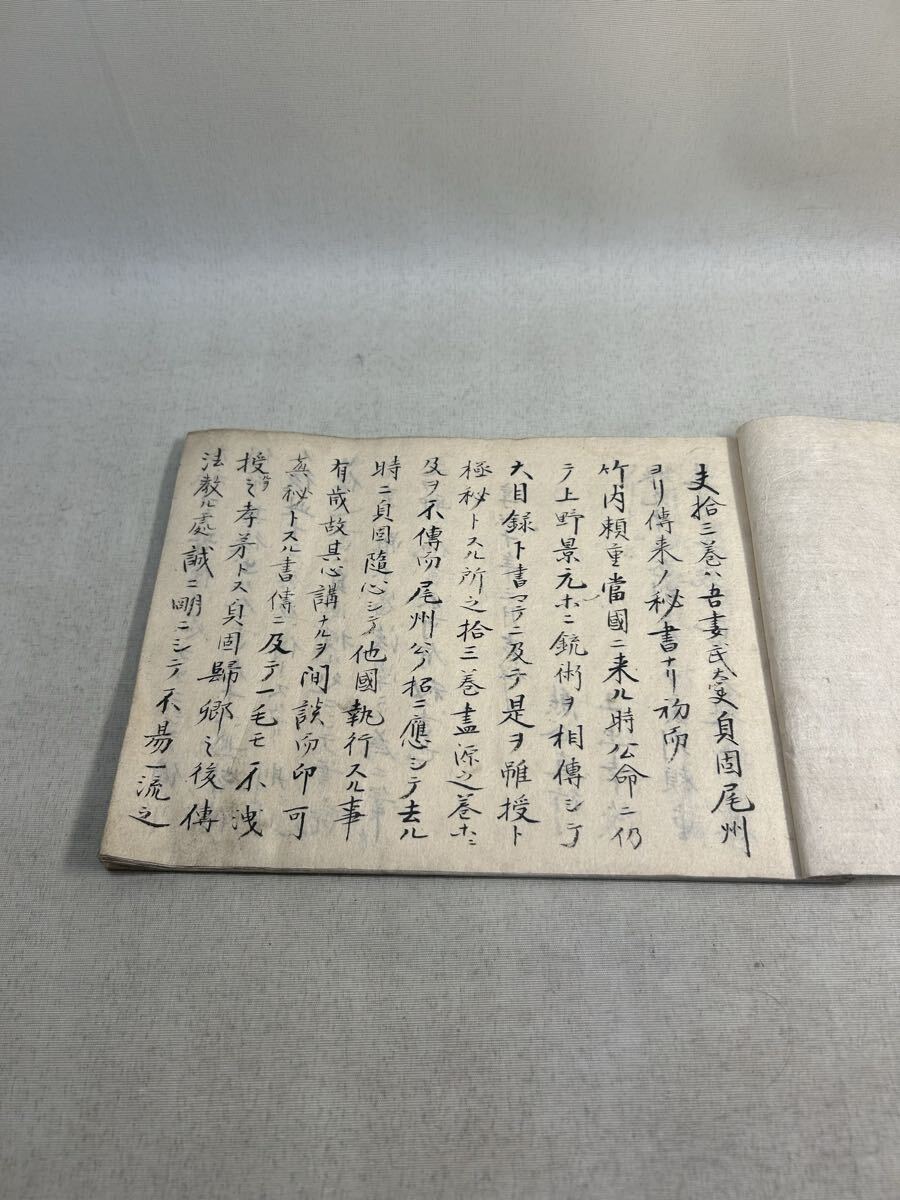 夫拾三巻ハ吾妻武太夫貞固尾州
ヨリ傳来ノ秘書ナリ初而
竹内頼重當國ニ来ル時公命ニ仍
テ上野景元ホニ銃術ヲ相傳シテ
大目録ト書マテニ及テ是ヲ雖授ト
極秘トスル所之拾三巻盡源之巻ホニ
及ヲ不傳而尾州公ノ招ニ應シテ去ル
時ニ貞固隨心シテ他國執行スル事
有歳故其心講ナルヲ間談而印可
無秘トスル書傳ニ及テ一毛モ不洩
授之孝弟トス貞固歸郷之後傳
法教ル處誠ニ明ニシテ不易一流之